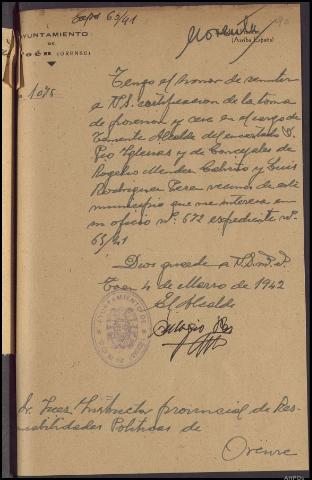 Expte 63/41
AYUNTAMIENTO
DE
(ORENSE)
(Arriba España)
1.075
Tengo el honor de remitir
a V.S. certificacion de la toma
de posesion y cese en el cargo de
Teniente Alcalde del encartado D.
Pio Iglesias y de Concejales de
Rogelio Mendez Cabrito y Luis
Rodriguez Perez vecinos de este
municipio que me interesa en
su oficio nº. 672 expediente nº.
63/41
Dios guarde a V.S. m. a.
4 de Marzo 1942
El Alcalde
AYUNTAMIENTO DE
Sr. Juez Instructor provincial de Res-
ponsabilidades Politicas de
Orense